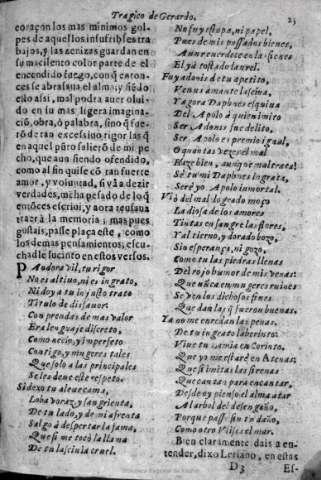 Tragico de Gerardo.
23
coraçon los mas minimos gol-
pes de aquellos insufribles tra
bajos, y las zenizas guardan en
su macilento color parte de el
encendido fuego, con q̃ enton-
ces se abrasaua el alma; y siẽdo
esto assi, mal podra auer olui-
do en su mas ligera imagina-
ciõ, obra, ò palabra, sino q̃ fue-
rõ de tan excessiuo rigor las q̃
en aquel pũto salierõ de mi pe
cho, que aun siendo ofendido,
como al fin quise cõ tan fuerte
amor, y voluntad, si và a dezir
verdades, me ha pesado de lo q̃
entõces escriui, y aora rehusaua
traerà la memoria; mas pues
gustais, passe plaça este, como
los demas pensamientos, escu-
chadle sucinto en estos versos.
Pandora vil, tu rigor
No es altiuo, ni es ingrato,
Ni doy a tu injusto trato
Titulo de disfauor:
Con prendas de mas valor
Era lenguaje discreto,
Como accio, y imperfeto
Contigo, y mugeres tales
Que solo a las principales
Se les deue este respeto.
Sidexo tu aleue cama,
Loba voraz, y sangrienta,
De tu lado, y de mi afrenta
Salgo à despertar la fama,
Que si me tocò la llama
De tu lasciuia cruel.
No fuy estopa, ni papel,
Pues de mis passados bienes,
Aun recuerdo en las sienes
El yà tostado laurel.
Fuy adonis de tu apetito,
Venus amante lasciua,
Y agora Daphnes esquiua
Del Apolo à quien imito
Ser Adonis fue delito,
Ser Apolo es premio igual,
O quantas vezes el mal
Haze bien, aunque maltrata!
Sè tu mi Daphnes ingrata,
Serè yo Apolo inmortal.
Viò del mal logrado moço
La diosa de los amores
Tintas en sangre las flores,
Y al tierno, y dorado boço,
Sin esperança, ni gozo,
Como tu las piedras llenas
Del rojo humor de mis venas:
Que nũca en mugeres ruines
Se ven los dichosos fines
Que dan las q̃ fueron buenas.
Ya no me enredan las penas,
De tu ingrato laberinto:
Viue tu Lamia en Corinto,
Que yo me estarè en Atenas;
Que si imitas las sirenas
Que cantan para encantar,
Desdeño pienso el alma atar
Al arbol del desengaño,
Porque passe sin tu daño,
Como otro Vlises el mar.
Bien claramente dais a en-
tender, dixo Leriano, en estas
D 3
Es-